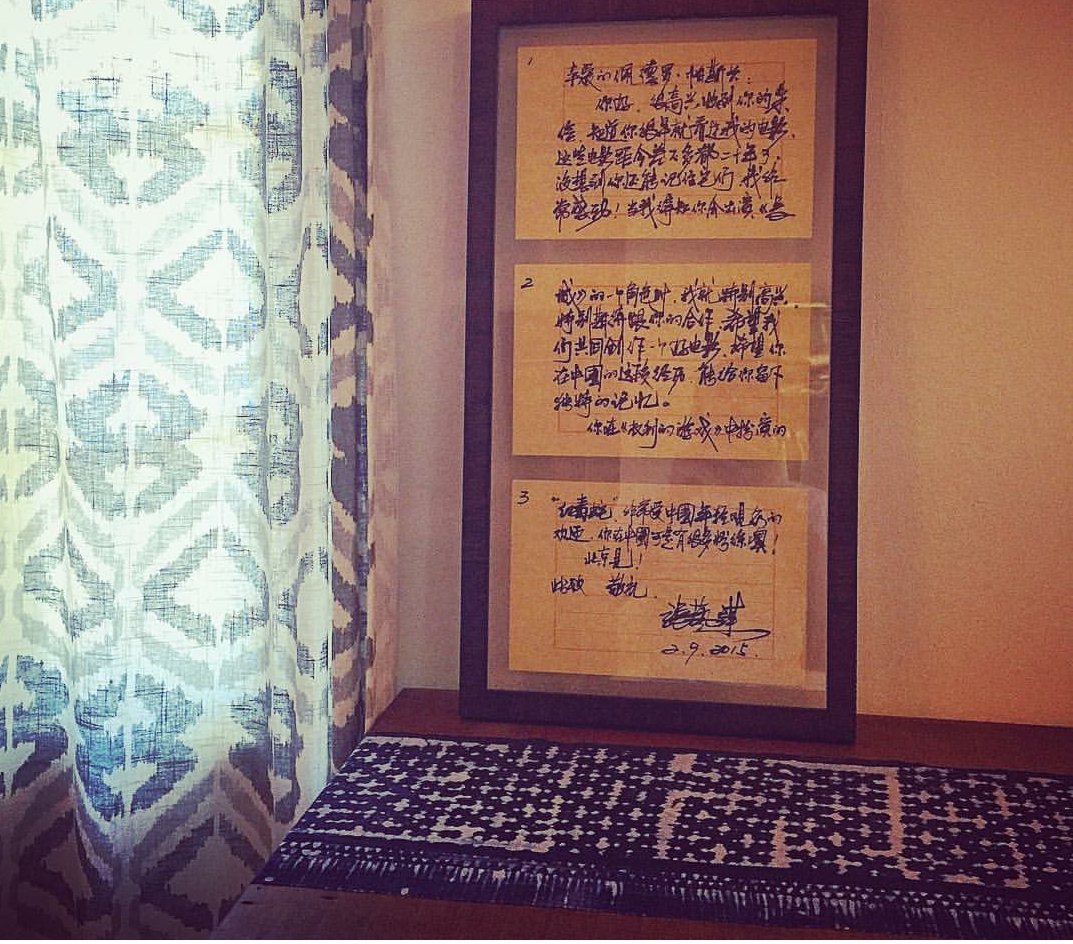 1
亲爱的佩德罗·帕斯卡：
你好，很高兴收到你的来
信，知道你很早就看过我的电影，
这些电影距今差不多都二十年了，
没想到你还能记住它们，我非
常感动！当我得知你会出演《长
2
城》的一个角色时，我就特别高兴，
特别期待跟你的合作，希望我
们共同创作一个好电影，希望你
在中国的这段经历，能给你留下
独特的记忆。
你在《权利的游戏》中扮演的
3
"红毒蛇"，非常受中國年轻观众的
欢迎，你在中國可是有很多粉丝團！
北京见！
此致 敬礼
张艺谋
2.9.2015.